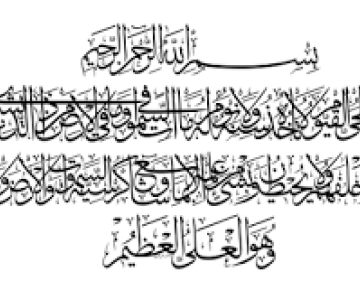 بسم الله الرحمن الرحيم
القيوم لا تأخذه سنة ولا نوم له ما في السموات وما في الأرض من ذا الذي
خلفهم ولا يحيطون بشيء من علمه إلا بما شاء وسع كرسيه السموات والأرض و
وهو العلي العظيم